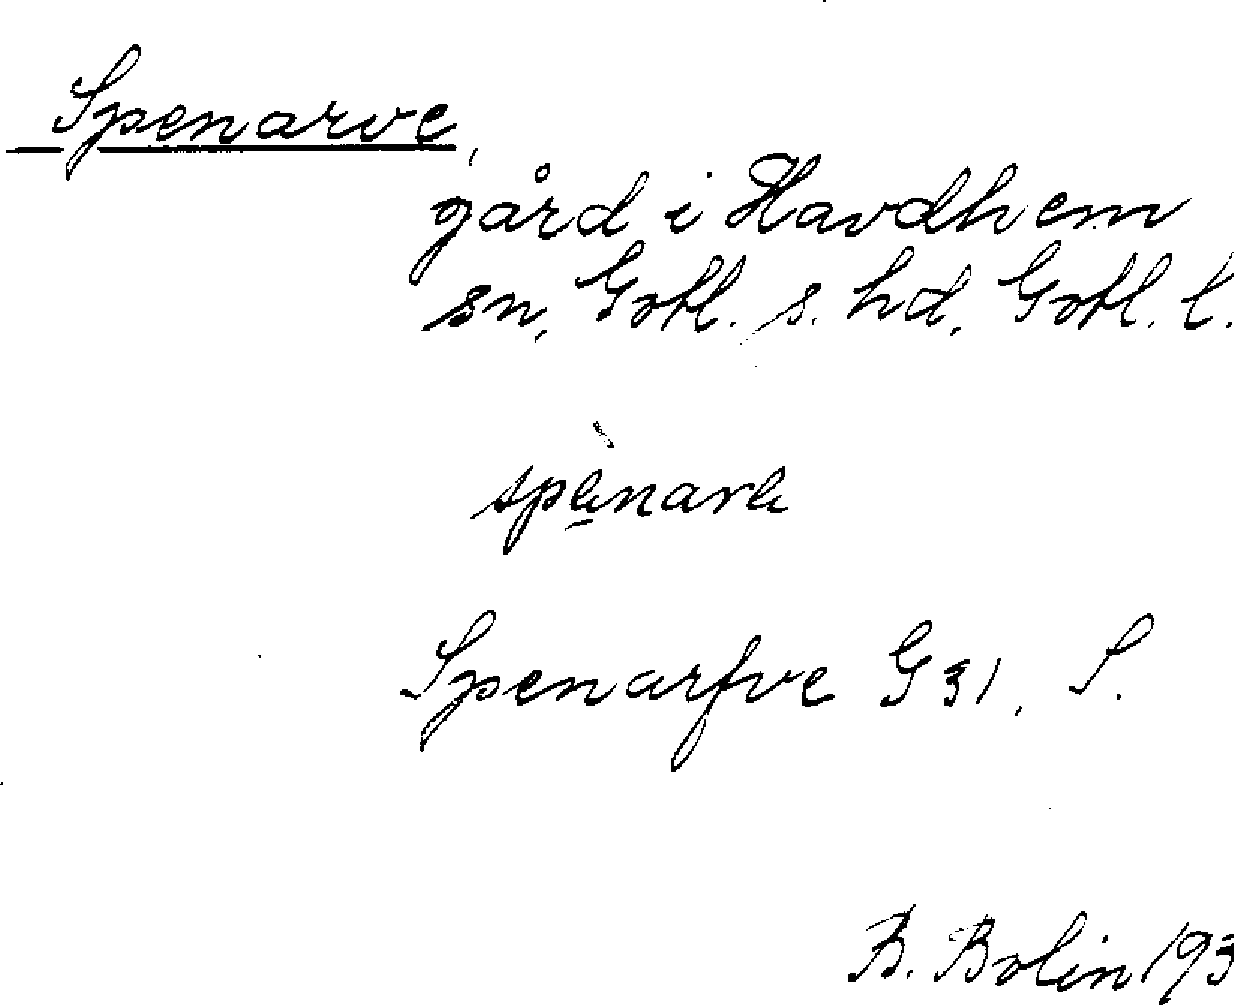 Spenarve,
gård i Havdhem
sn, Gotl. s. hd, Gotl. l.
spènarve
Spenarfve G 31, S.
B. Bolin 193